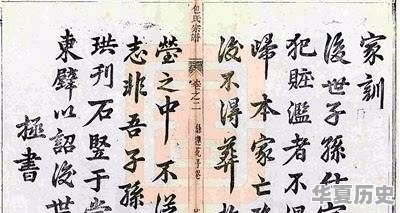 家訓
後世子孫仕
犯賍濫者不得
歸本家亡歿
後不得葬於
包氏宗譜
卷之二
塋之中不從
志非吾子孫
珙刊石竪于堂
東壁以詔後世
極書
华夏历史